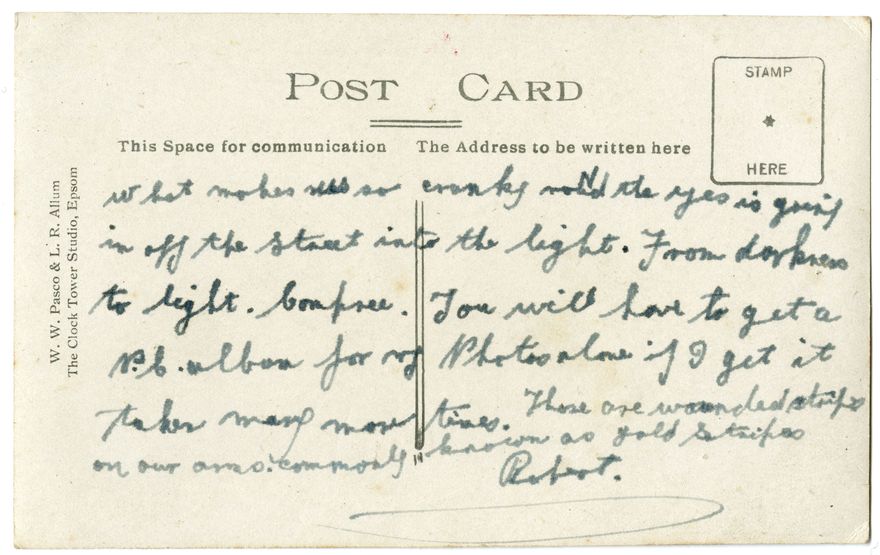 POST CARD
This Space for communication
The Address to be written here
STAMP
HERE
W. W. Pasco & L. R. Allum
The Clock Tower Studio, Epsom
what makes us so cranky the yes is going
in off the street into the light. From darkness
to light. Compree. You will have to get a
P.C. album for my Photos alone if I get it
taken many more times. These are wounded stripes
on our arms. commonly known as gold stripes
Robert.